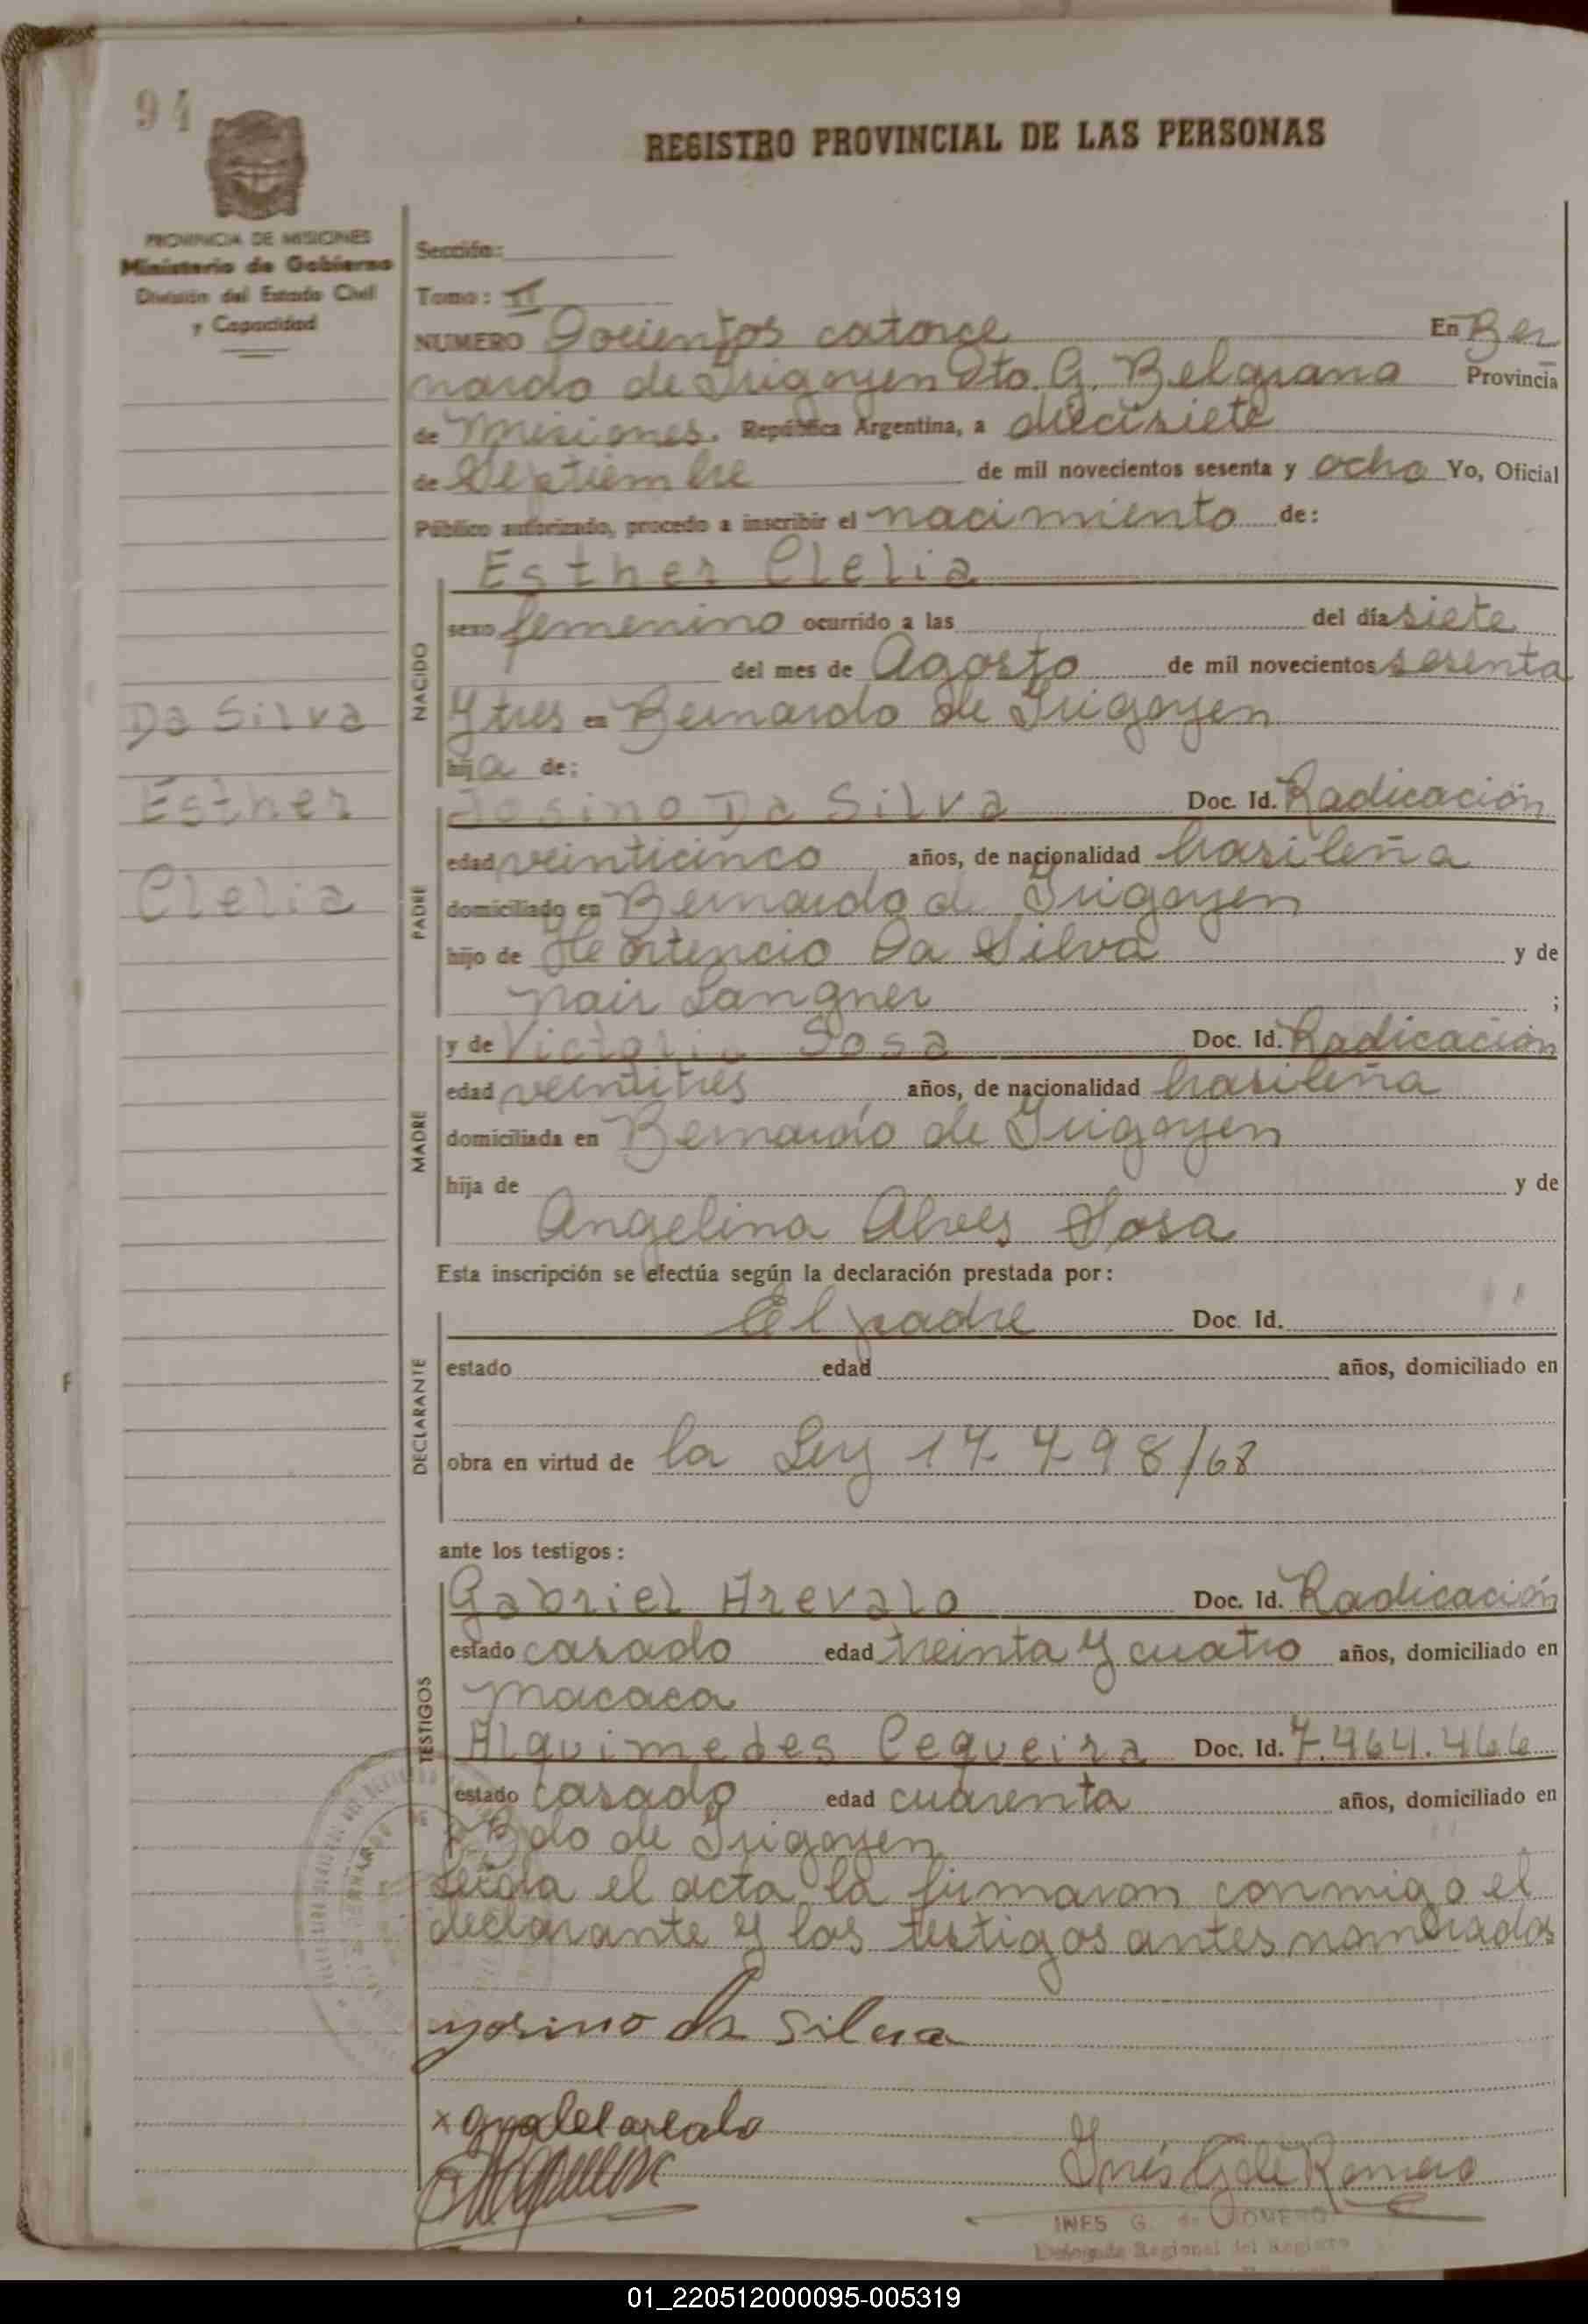 94
REGISTRO PROVINCIAL DE LAS PERSONAS
PROVINCIA DE MISIONES
Ministerio de Gobierno
División del Estado Civil
y Capacidad
Sección:
Tomo: II
NUMERO Docientos catorce En Ber
nardo de Irigoyen Dto. G. Belgrano Provincia
de Misiones. República Argentina, a diecisiete
de Septiembre de mil novecientos sesenta y ocho Yo, Oficial
Público autorizado, procedo a inscribir el nacimiento de:
Esther Clelia
NACIDO
sexo femenino ocurrido a las del día siete
del mes de Agosto de mil novecientos sesenta
y tres en Bernardo de Irigoyen
hija de:
Da Silva
Esther
Clelia
PADRE
Josino Da Silva Doc. Id. Radicación
edad veinticinco años, de nacionalidad brasileña
domiciliado en Bernardo de Irigoyen
hijo de Hortencio Da Silva y de
Nair Langner ;
MADRE
y de Victoria Sosa Doc. Id. Radicación
edad veintitres años, de nacionalidad brasileña
domiciliada en Bernardo de Irigoyen
hija de y de
Angelina Alves Sosa
Esta inscripción se efectúa según la declaración prestada por:
DECLARANTE
El padre Doc. Id.
estado edad años, domiciliado en
obra en virtud de la Ley 17798/68
ante los testigos:
TESTIGOS
Gabriel Arevalo Doc. Id. Radicación
estado casado edad treinta y cuatro años, domiciliado en
Macaca
Alquimedes Cequeira Doc. Id. 7.464.466
estado casado edad cuarenta años, domiciliado en
Bdo de Irigoyen
Leida el acta la firmaron conmigo el
declarante y los testigos antes nombrados
yosino da silva
x
Inés G de Romero
INES G. de ROMERO
Delegada Regional del Registro
01_220512000095-005319